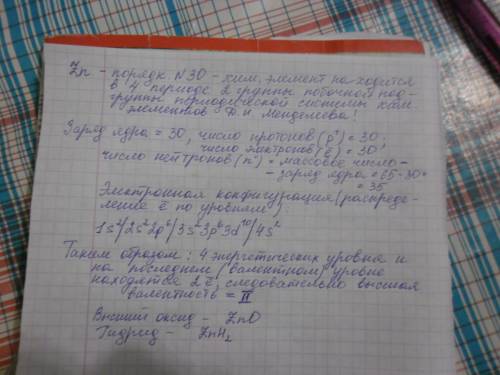 Zn - порядк. N30 - хим. элемент находится
в 4 периоде 2 группы побочной под-
группы периодической системы хим.
элементов Д. И. Менделеева!
Заряд ядра = 30, число протонов (p⁺) = 30;
число электронов (ē) = 30;
число нейтронов (n°) = массовое число -
- заряд ядра = 65 - 30 =
= 35
Электронная конфигурация (распреде-
ление ē по уровням):
1s²/2s²2p⁶/3s²3p⁶3d¹⁰/4s²
Таким образом: 4 энергетических уровня и
на последнем (валентном) уровне
находятся 2ē, следовательно высшая
валентность = II
Высший оксид - ZnO
Гидрид - ZnH₂